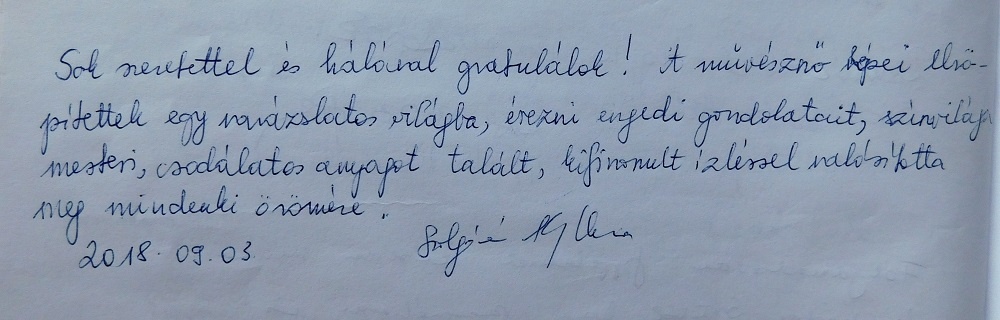 Sok szeretettel és hálával gratulálok! A művésznő képei elrö-
pítettek egy varázslatos világba, érezni engedi gondolatait, színvilága
mesteri, csodálatos anyagot talált, kifinomult ízléssel valósította
meg mindenki örömére.
2018. 09. 03.